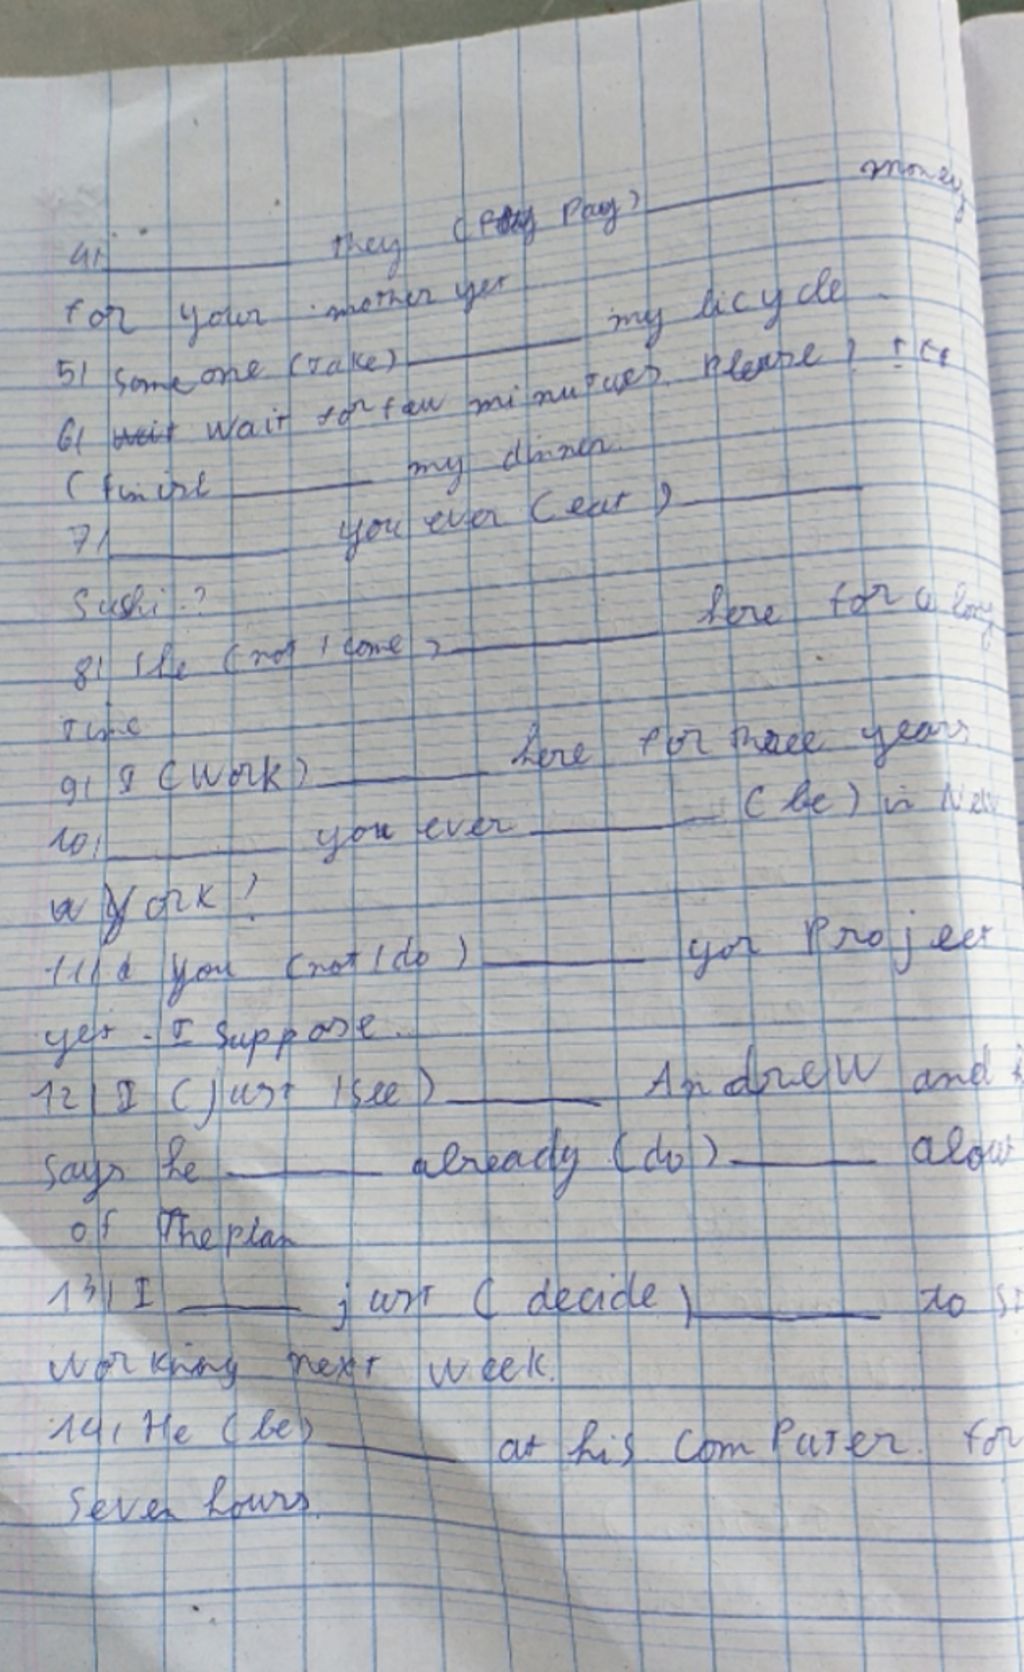 4) ______ they (Pay) ______ money
for your mother yet
5) Someone (Take) ______ my bicycle.
6) wait for few minutes please !
(finish ______ my dinner.
7) ______ you ever (eat) ______
Sushi ?
8) (not / come) ______ here for a long
Time
9) I (Work) ______ here for three years
10) ______ you ever ______ (be) in New
York ?
11) you (not / do) ______ yor Project
yet. I Suppose.
12) I (just / see) ______ Andrew and
says he ______ already (do) ______
of The plan
13) I ______ just (decide) ______ to
Working next week.
14) He (be) ______ at his Computer for
Seven hours.